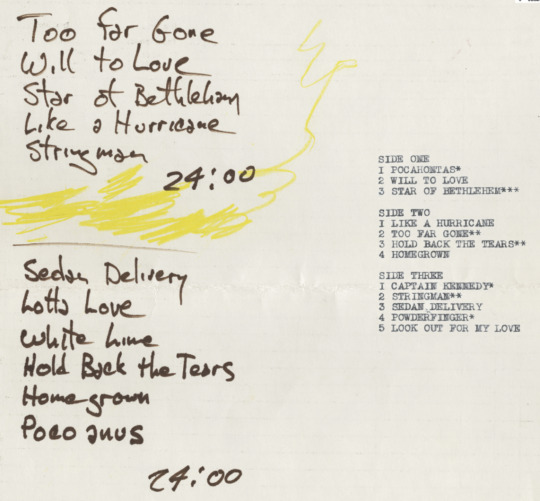 Too Far Gone
Will to Love
Star of Bethlehem
Like a Hurricane
Stringman
24:00
Sedan Delivery
Lotta Love
White Line
Hold Back the Tears
Homegrown
Pocoanus
24:00
SIDE ONE
1 POCAHONTAS*
2 WILL TO LOVE
3 STAR OF BETHLEHEM***
SIDE TWO
1 LIKE A HURRICANE
2 TOO FAR GONE**
3 HOLD BACK THE TEARS**
4 HOMEGROWN
SIDE THREE
1 CAPTAIN KENNEDY*
2 STRINGMAN**
3 SEDAN DELIVERY
4 POWDERFINGER*
5 LOOK OUT FOR MY LOVE